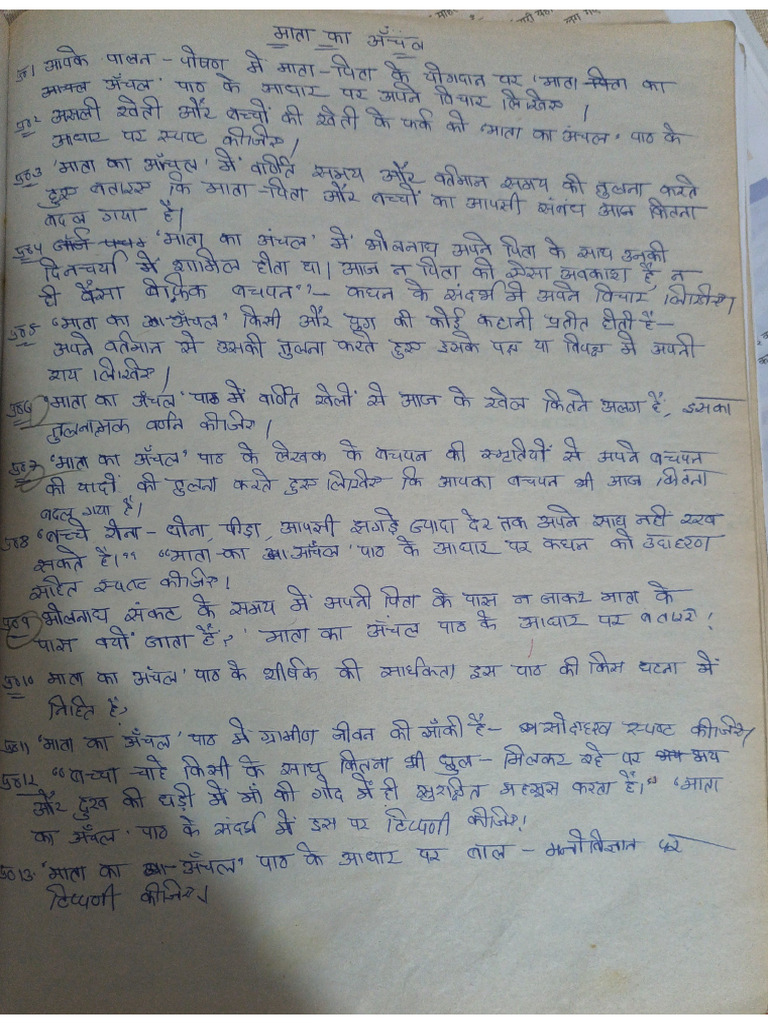 माता का अँचल
प्र०1 आपके पालन - पोषण में माता - पिता के योगदान पर 'माता का
अँचल' पाठ के आधार पर अपने विचार लिखिए।
प्र०2 असली खेती और बच्चों की खेती के फर्क को 'माता का अंचल' पाठ के
आधार पर स्पष्ट कीजिए।
प्र०3 'माता का आँचल' में वर्णित समय और वर्तमान समय की तुलना करते
हुए बताइए कि माता - पिता और बच्चों का आपसी संबंध आज कितना
बदल गया है।
प्र०4 'माता का अंचल' में भोलानाथ अपने पिता के साथ उनकी
दिनचर्या में शामिल होता था। आज न पिता को ऐसा अवकाश है, न
ही वैसा बेफ़िक्र बचपन" - कथन के संदर्भ में अपने विचार लिखिए।
प्र०5 "माता का अँचल' किसी और युग की कोई कहानी प्रतीत होती है -
अपने वर्तमान से उसकी तुलना करते हुए इसके पक्ष या विपक्ष में अपनी
राय लिखिए।
प्र०6 'माता का अँचल' पाठ में वर्णित खेलों से आज के खेल कितने अलग हैं, इसका
तुलनात्मक वर्णन कीजिए।
प्र०7 'माता का अँचल' पाठ के लेखक के बचपन की स्मृतियों से अपने बचपन
की यादों की तुलना करते हुए लिखिए कि आपका बचपन भी आज कितना
बदल गया है।
प्र०8 "बच्चे रोना - धोना, पीड़ा, आपसी झगड़े ज्यादा देर तक अपने साथ नहीं रख
सकते है।" "माता का अँचल' पाठ के आधार पर कथन को उदाहरण
सहित स्पष्ट कीजिए।
प्र०9 भोलनाथ संकट के समय में अपनी पिता के पास न जाकर माता के
पास क्यों जाता है? 'माता का अँचल पाठ के आधार पर बताइए।
प्र०10 माता का अँचल' पाठ के शीर्षक की सार्थकता इस पाठ की किस घटना में
निहित है?
प्र०11 'माता का अँचल' पाठ में ग्रामीण जीवन की झाँकी है - सोदाहरण स्पष्ट कीजिए।
प्र०12 "बच्चा चाहे किसी के साथ कितना भी घुल - मिलकर रहे पर भय
और दुख की घड़ी में माँ की गोद में ही सुरक्षित महसूस करता है।" "माता
का अँचल' पाठ के संदर्भ में इस पर टिप्पणी कीजिए।
प्र०13. 'माता का अँचल" पाठ के आधार पर बाल - मनोविज्ञान पर
टिप्पणी कीजिए।